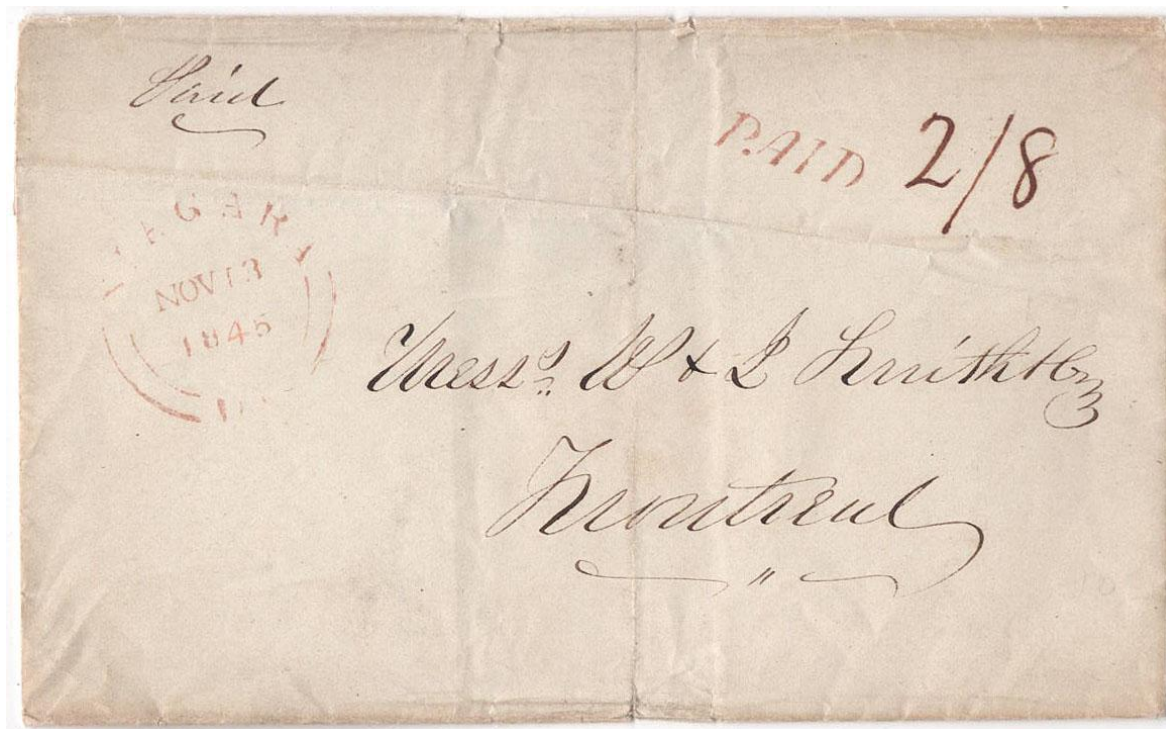 Paid
PAID 2/8
NOV 13
1845
Mess.rs W & J Smith & Co
Montreal